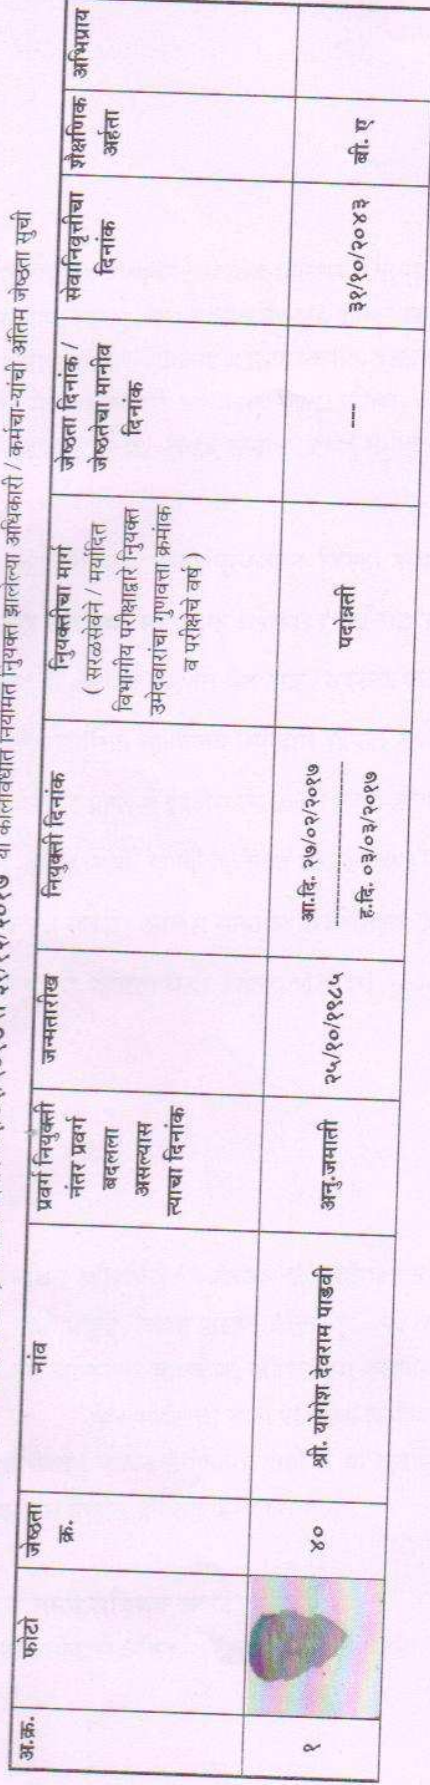 ३१/१२/२०१७ या कालावधीत नियमित नियुक्त झालेल्या अधिकारी / कर्मचा-यांची अंतिम जेष्ठता सुची
अ.क्र.
फोटो
जेष्ठता
क्र.
नांव
प्रवर्ग नियुक्ती
नंतर प्रवर्ग
बदलला
असल्यास
त्याचा दिनांक
जन्मतारीख
नियुक्ती दिनांक
नियुक्तीचा मार्ग
( सरळसेवेने / मर्यादित
विभागीय परीक्षाद्वारे नियुक्त
उमेदवारांचा गुणवत्ता क्रमांक
व परीक्षचे वर्ष )
जेष्ठता दिनांक /
जेष्ठतेचा मानीव
दिनांक
सेवानिवृत्तीचा
दिनांक
शैक्षणिक
अर्हता
अभिप्राय
१
४०
श्री. योगेश देवराम पाडवी
अनु.जमाती
२५/१०/१९८५
आ.दि. २७/०२/२०१७
--------------------
ह.दि. ०३/०३/२०१७
पदोन्नती
---
३१/१०/२०४३
बी. ए